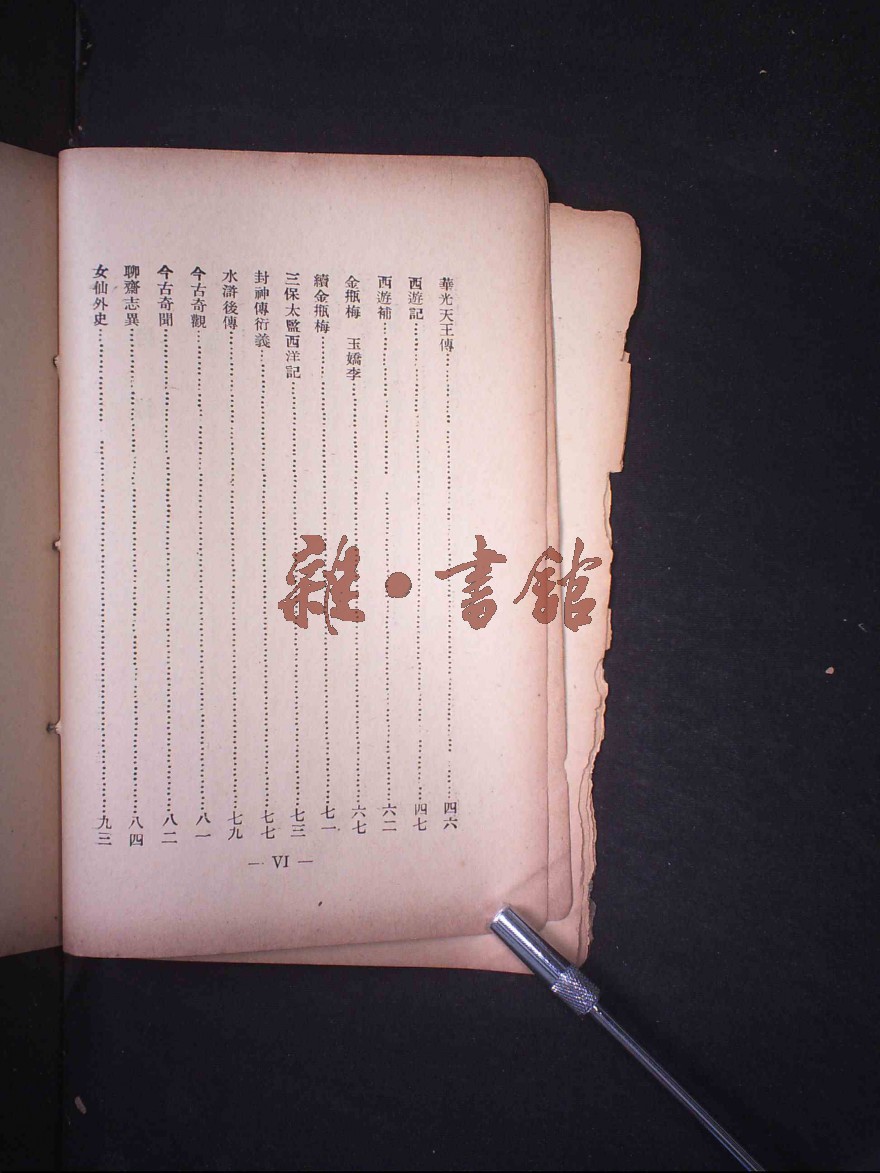 華光天王傳……四六
西遊記……四七
西遊補……六二
金瓶梅　玉嬌李……六七
續金瓶梅……七一
三保太監西洋記……七三
封神傳衍義……七七
水滸後傳……七九
今古奇觀……八一
今古奇聞……八二
聊齋志異……八四
女仙外史……九三
— VI —
雜·書館